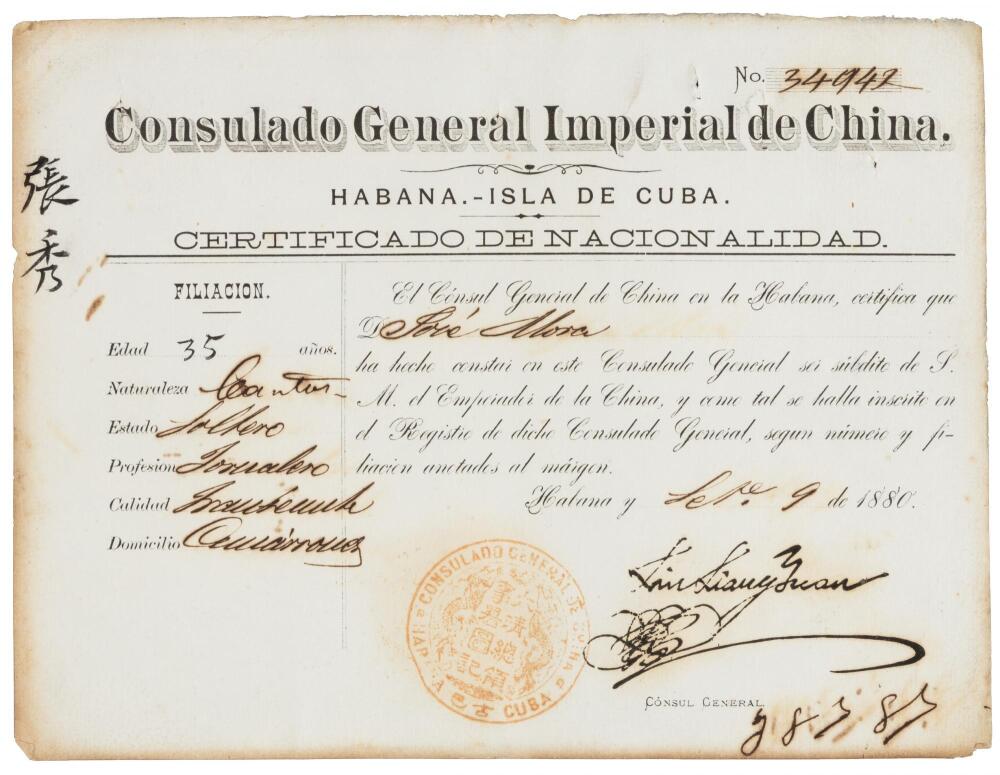 No. 34942
Consulado General Imperial de China.
HABANA.-ISLA DE CUBA.
CERTIFICADO DE NACIONALIDAD.
張秀
FILIACION.
Edad 35 años.
Naturaleza Canton
Estado Soltero
Profesion Jornalero
Calidad
Domicilio
El Cónsul General de China en la Habana, certifica que
D José Mora
ha hecho constar en este Consulado General ser súbdito de S.
M. el Emperador de la China, y como tal se halla inscrito en
el Registro de dicho Consulado General, segun número y fi-
liacion anotados al márgen.
Habana y Set.e 9 de 1880.
CONSULADO GENERAL DE CHINA
HABANA CUBA
大清
總領
古巴
Liu Liang Yuan
CÓNSUL GENERAL.